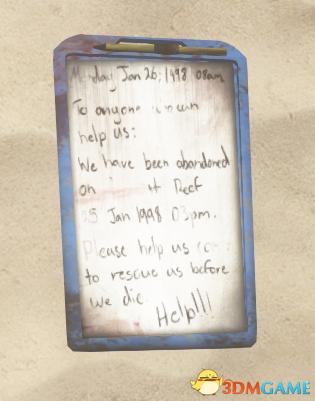 Monday Jan 26, 1998 08am
To anyone can
help us:
We have been abandoned
on Reef
25 Jan 1998 03pm.
Please help us
to rescue us before
we die.
Help!!!
3DMGAME